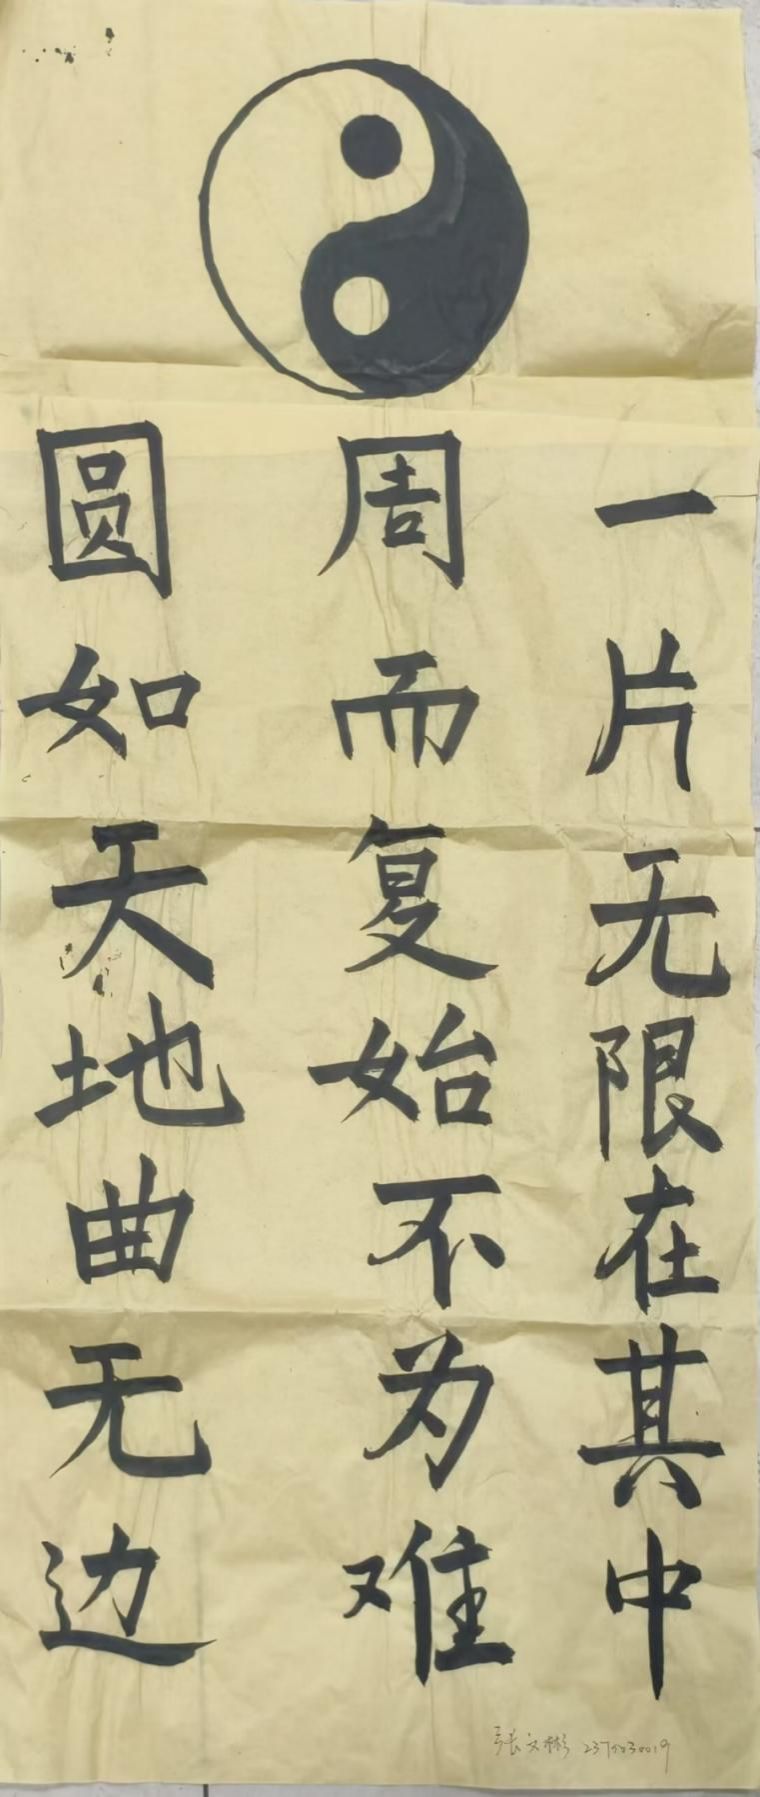 一片无限在其中
周而复始不为难
圆如天地曲无边
张文彬